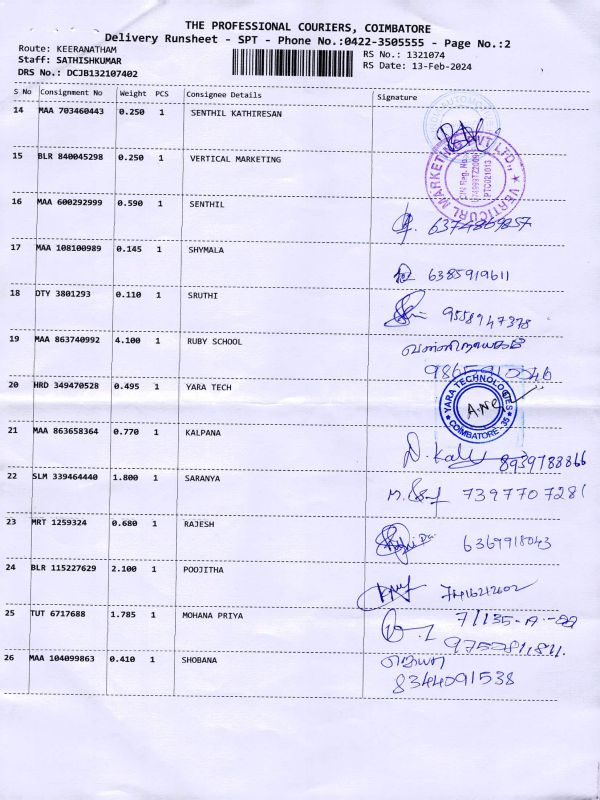 THE PROFESSIONAL COURIERS, COIMBATORE
Delivery Runsheet - SPT - Phone No.:0422-3505555 - Page No.:2
Route: KEERANATHAM
RS No.: 1321074
Staff: SATHISHKUMAR
RS Date: 13-Feb-2024
DRS No.: DCJB132107402
S No Consignment No Weight PCS Consignee Details Signature
14 MAA 703460443 0.250 1 SENTHIL KATHIRESAN
15 BLR 840045298 0.250 1 VERTICAL MARKETING
VERTICURL MARKETING PVT LTD.,
16 MAA 600292999 0.590 1 SENTHIL
6374869857
17 MAA 108100989 0.145 1 SHYMALA
6385919611
18 DTY 3801293 0.110 1 SRUTHI
9558947378
19 MAA 863740992 4.100 1 RUBY SCHOOL
20 HRD 349470528 0.495 1 YARA TECH
YARA TECHNOLOGIES
COIMBATORE - 35
21 MAA 863658364 0.770 1 KALPANA
8939788866
22 SLM 339464440 1.800 1 SARANYA
7397707281
23 MRT 1259324 0.680 1 RAJESH
6369918043
24 BLR 115227629 2.100 1 POOJITHA
25 TUT 6717688 1.785 1 MOHANA PRIYA
26 MAA 104099863 0.410 1 SHOBANA
8344091538